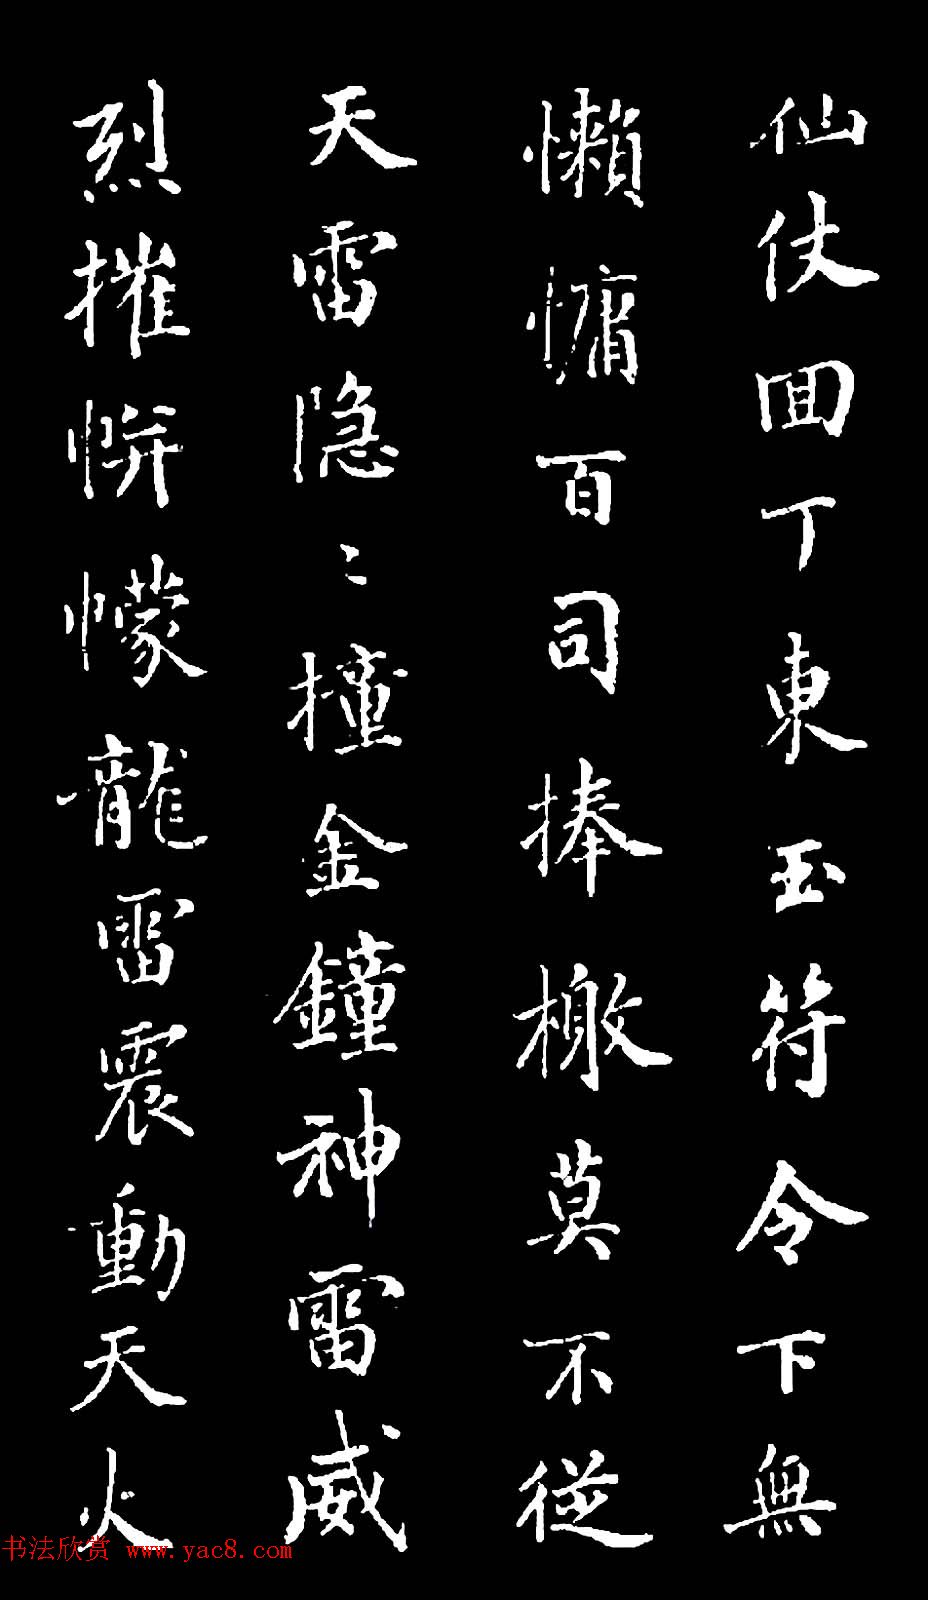 仙仗回丁東玉符令下無
懶慵百司捧檄莫不從
天雷隐〻撞金鐘神雷威
烈摧恲幪龍雷震動天火
书法欣赏 www.yac8.com